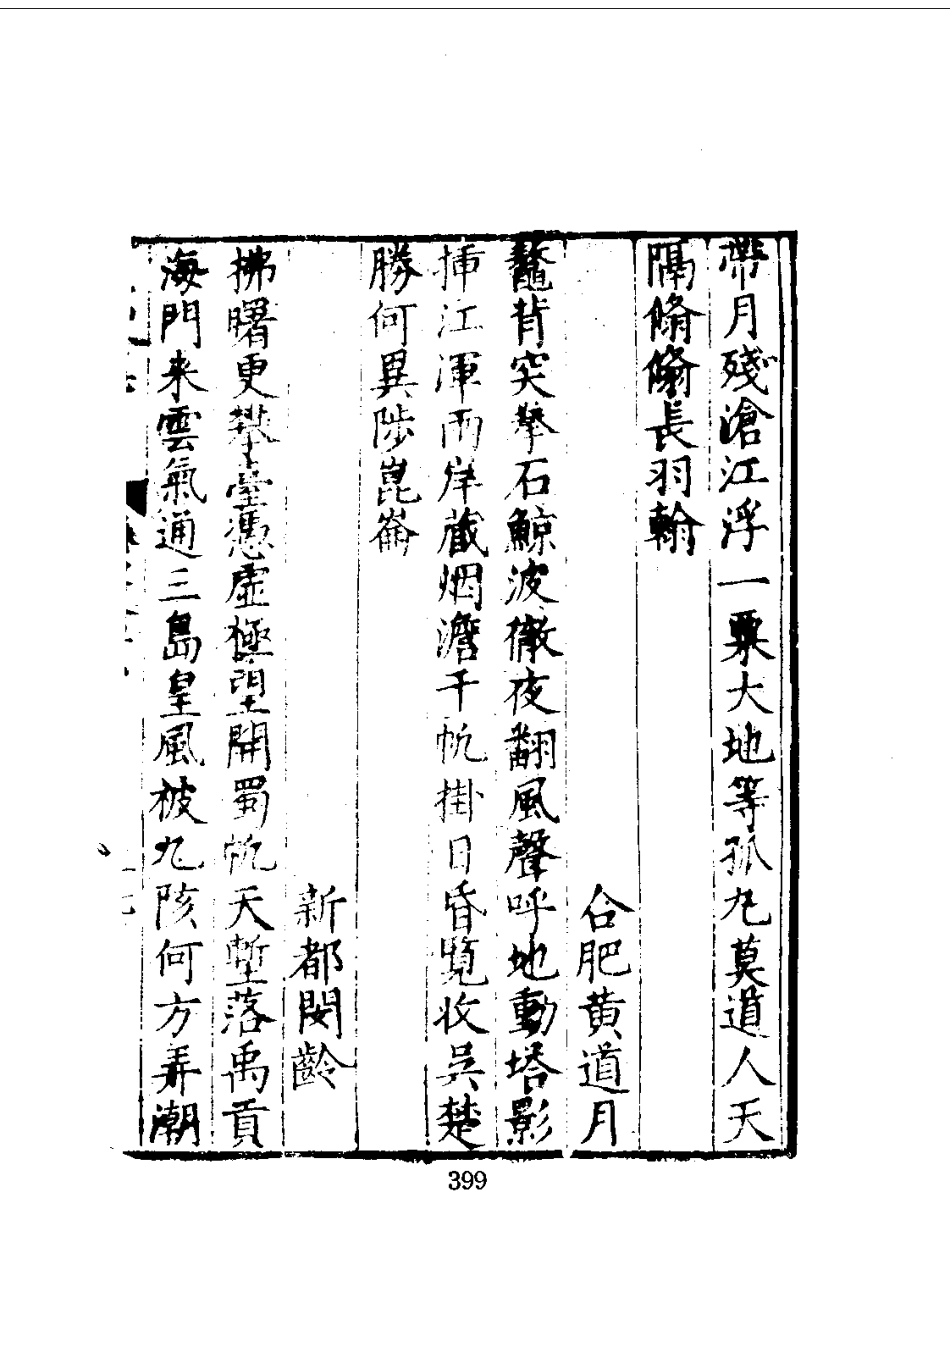 帶月殘滄江浮一粟大地等孤丸莫道人天
隔翛翛長羽翰
合肥黄道月
鼇背突拳石鯨波徹夜翻風聲呼地動塔影
揷江渾兩岸蔵烟澹千帆掛日昏覽收吳楚
勝何異陟崑崙
新都閔齡
拂曙更攀臺憑虛極望開蜀帆天塹落禹貢
海門来雲氣通三島皇風被九陔何方弄潮
399